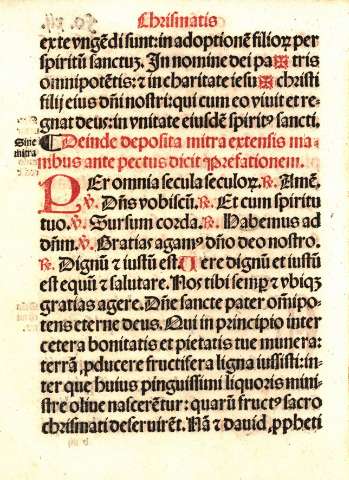 Chrismatis
ex te vngēdi sunt: in adoptionē filioꝝ per
spiritū sanctuꝫ. In nomine dei pa ✠ tris
omnipotētis: ⁊ in charitate iesu ✠ christi
filij eius dn̄i nostri: qui cum eo viuit et re-
gnat deus: in vnitate eiusdē spiritꝰ sancti.
Sine
mitra
¶ Deinde deposita mitra extensis ma-
nibus ante pectus dicit Prefationem.
PEr omnia secula seculoꝝ. ℟. Amē.
℣. Dn̄s vobiscū. ℟. Et cum spiritu
tuo. ℣. Sursum corda. ℟. Habemus ad
dn̄m. ℣. Gratias agamꝰ dn̄o deo nostro.
℟. Dignū ⁊ iustū est. Uere dignū et iustū
est equū ⁊ salutare. Nos tibi semꝑ ⁊ vbiqꝫ
gratias agere. Dn̄e sancte pater om̄ipo-
tens eterne deus. Qui in principio inter
cetera bonitatis et pietatis tue munera:
terrā, ꝓducere fructifera ligna iussisti: in-
ter que huius pinguissimi liquoris mini-
stre oliue nascerētur: quarū fructꝰ sacro
chrismati deseruirēt. Nā ⁊ dauid, ꝓpheti